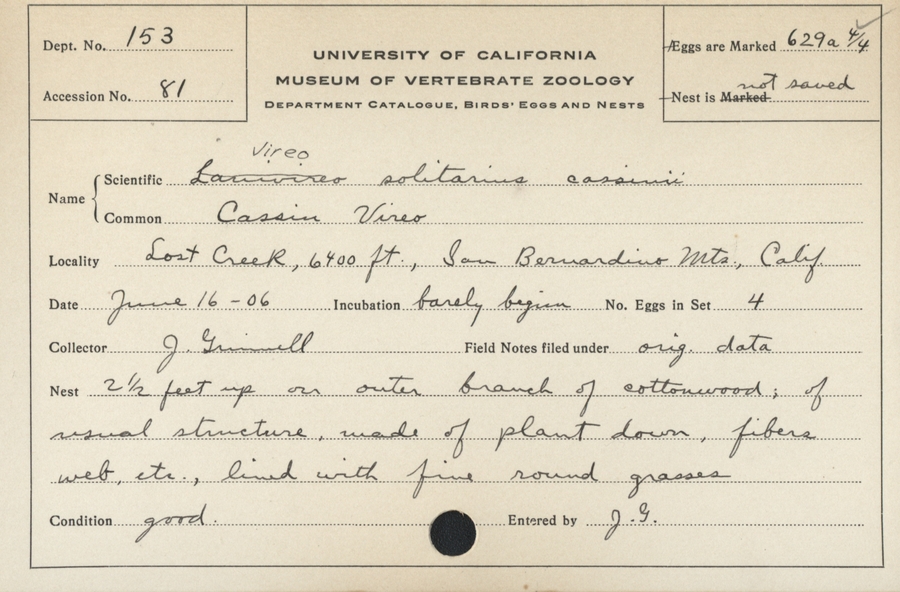 Dept. No. 153
Accession No. 81
UNIVERSITY OF CALIFORNIA
MUSEUM OF VERTEBRATE ZOOLOGY
DEPARTMENT CATALOGUE, BIRDS' EGGS AND NESTS
Eggs are Marked 629a 4/4
not saved
Nest is Marked
Vireo
Name
Scientific Lanivireo solitarius cassinii
Common Cassin Vireo
Locality Lost Creek, 6400 ft., San Bernardino Mts., Calif
Date June 16-06 Incubation barely begun No. Eggs in Set 4
Collector J. Grinnell Field Notes filed under orig. data
Nest 2 1/2 feet up on outer branch of cottonwood; of
usual structure, made of plant down, fibers
web, etc., lined with fine round grasses
Condition good. Entered by J.G.